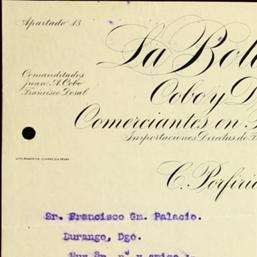 Apartado 13
La Bol
Comanditados
Juan A. Cobo
Francisco Dosal
Cobo y D
Comerciantes en
Importaciones Directas de
C. Porfiri
Sr. Francisco Gm. Palacio.
Durango, Dgo.
Muy Sr. n/ y amigo:-